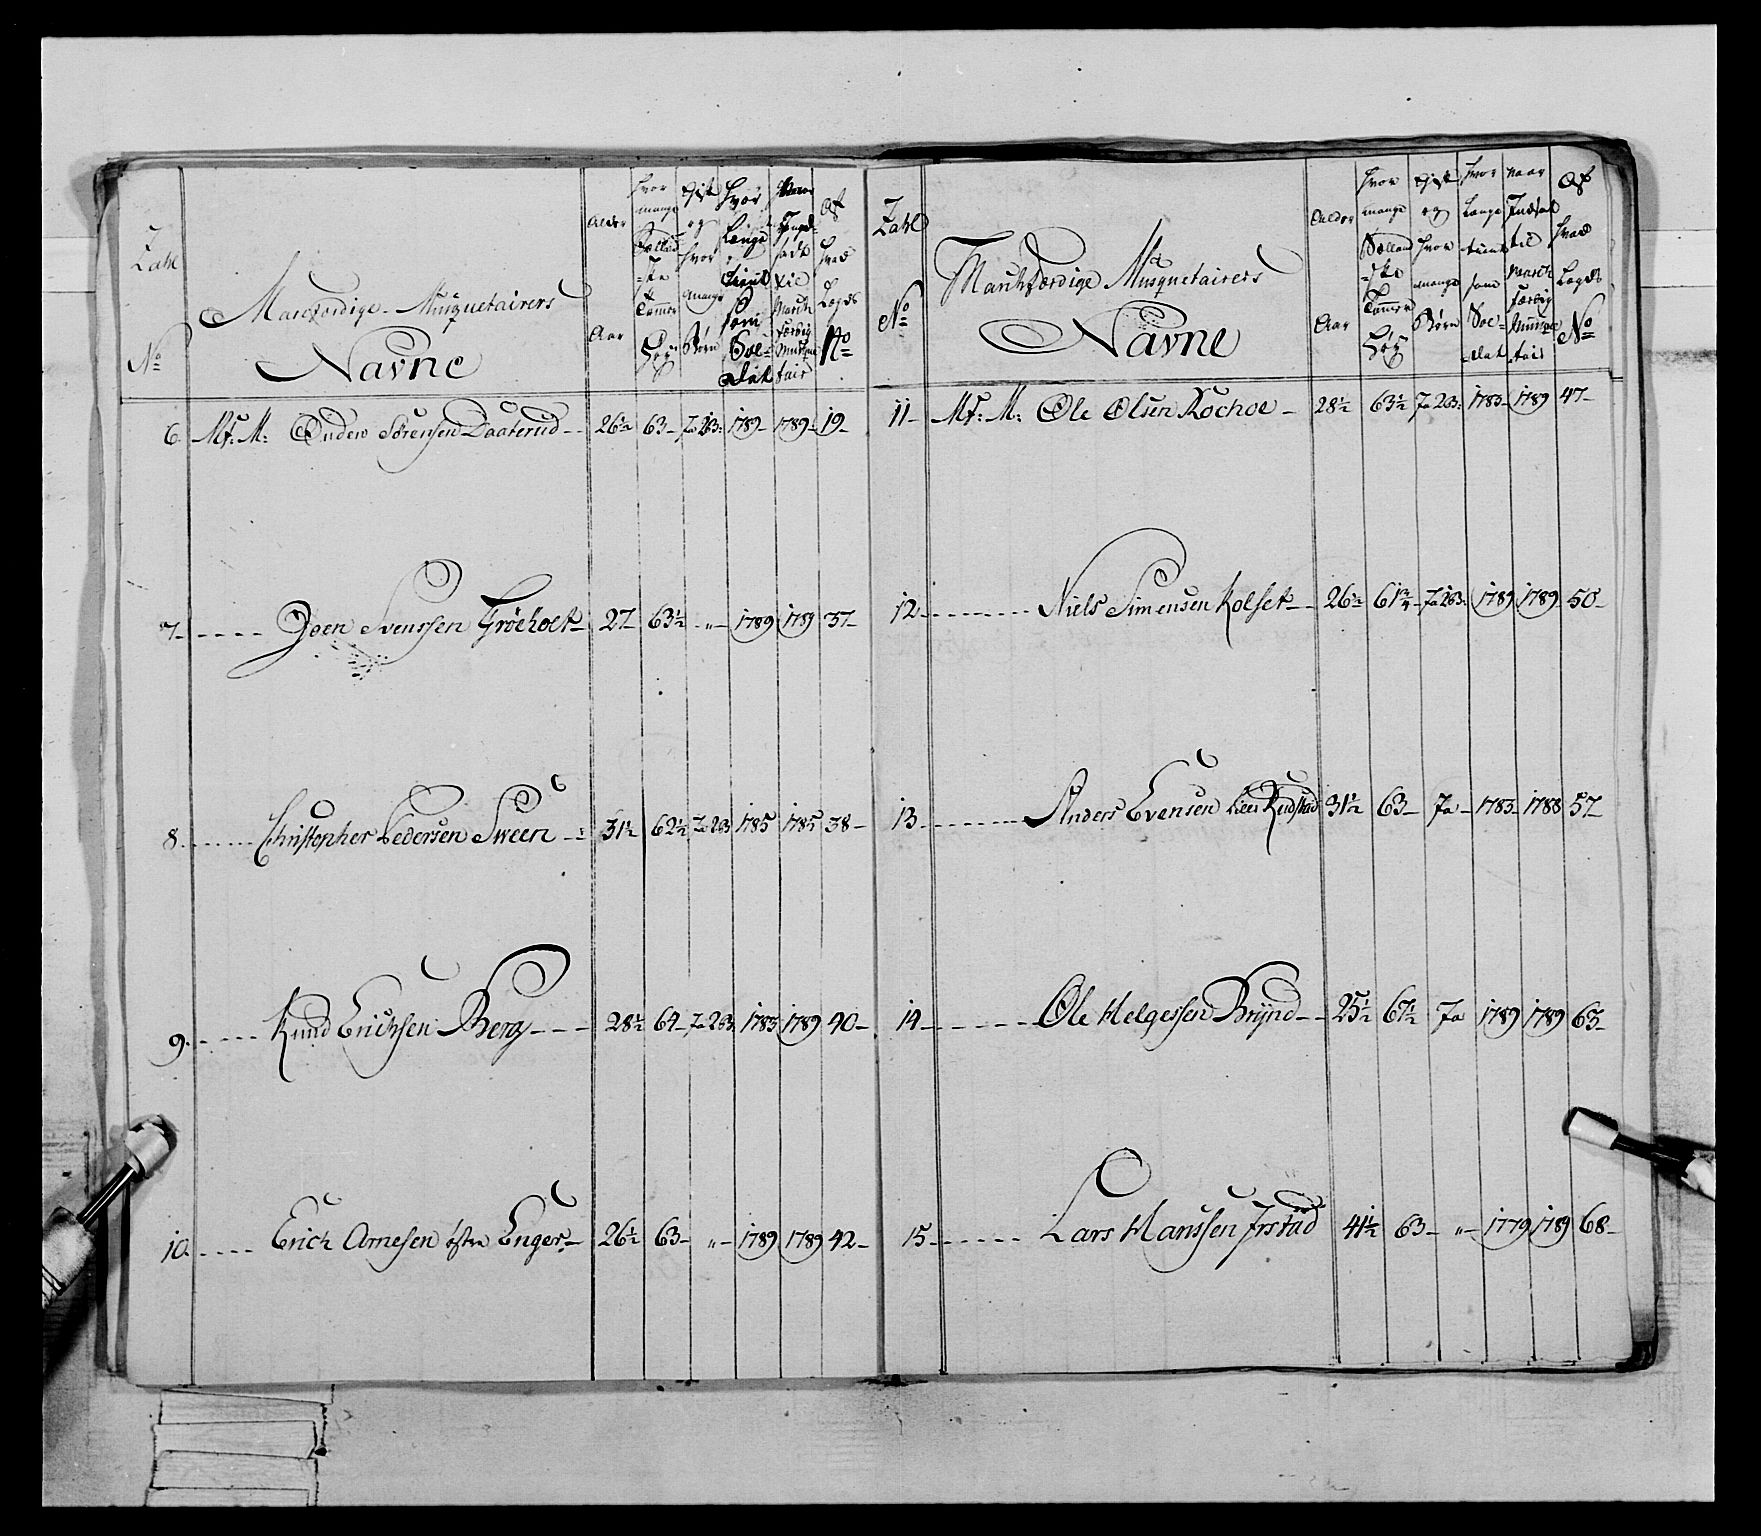 Zahl
No
Marchfærdige Musquetairers
Navne
Alder
Aar
Hvor mange Sællandske Tommer Høy
Gift og hvor mange Børn
Hvor Længe tient som Soldat
Naar Indsadt til March færdig Musquetair
Af hvad Lægds No
6 Mf: M: Anders Sörensen Daaterud - 26½ 63 - Ja 2B: 1789 - 1789 - 19 -
7 - Joen Svenssen Gröeholt - 27 - 63½ „ - 1789 1789 37 -
8 - Christopher Pedersen Sween - 31½ 62½ Ja 2B 1785 1785 38 -
9 - Knud Erichsen Berg - 28½ 64 - Ja 2B 1783 1789 40 -
10 - Erich Arnesen østre Enger - 26½ 63 - „ - 1789 1789 42 -
Zahl
No
Marchfærdige Musquetairers
Navne
Alder
Aar
hvor mange Sællandske Tommer Høy
Gift og hvor mange Børn
hvor Længe tient som Soldat
naar Indsat til march færdig Musquetair
Af hvad Lægds No
11 - Mf: M: Ole Olsen Kochoe - 28½ 63½ Ja 2B: 1783 - 1789 47 -
12 - Niels Simensen Kolset - 26½ 61¾ Ja 2B: 1789 1789 50 -
13 - Anders Evensen Rudstad 31½ 63 - Ja - 1783 - 1788 57 -
14 - Ole Helgessen Brÿnd - 25½ 67½ Ja 1789 1789 63 -
15 - Lars Hanssen Irstad 41½ 63 - „ - 1779 1789 68 -